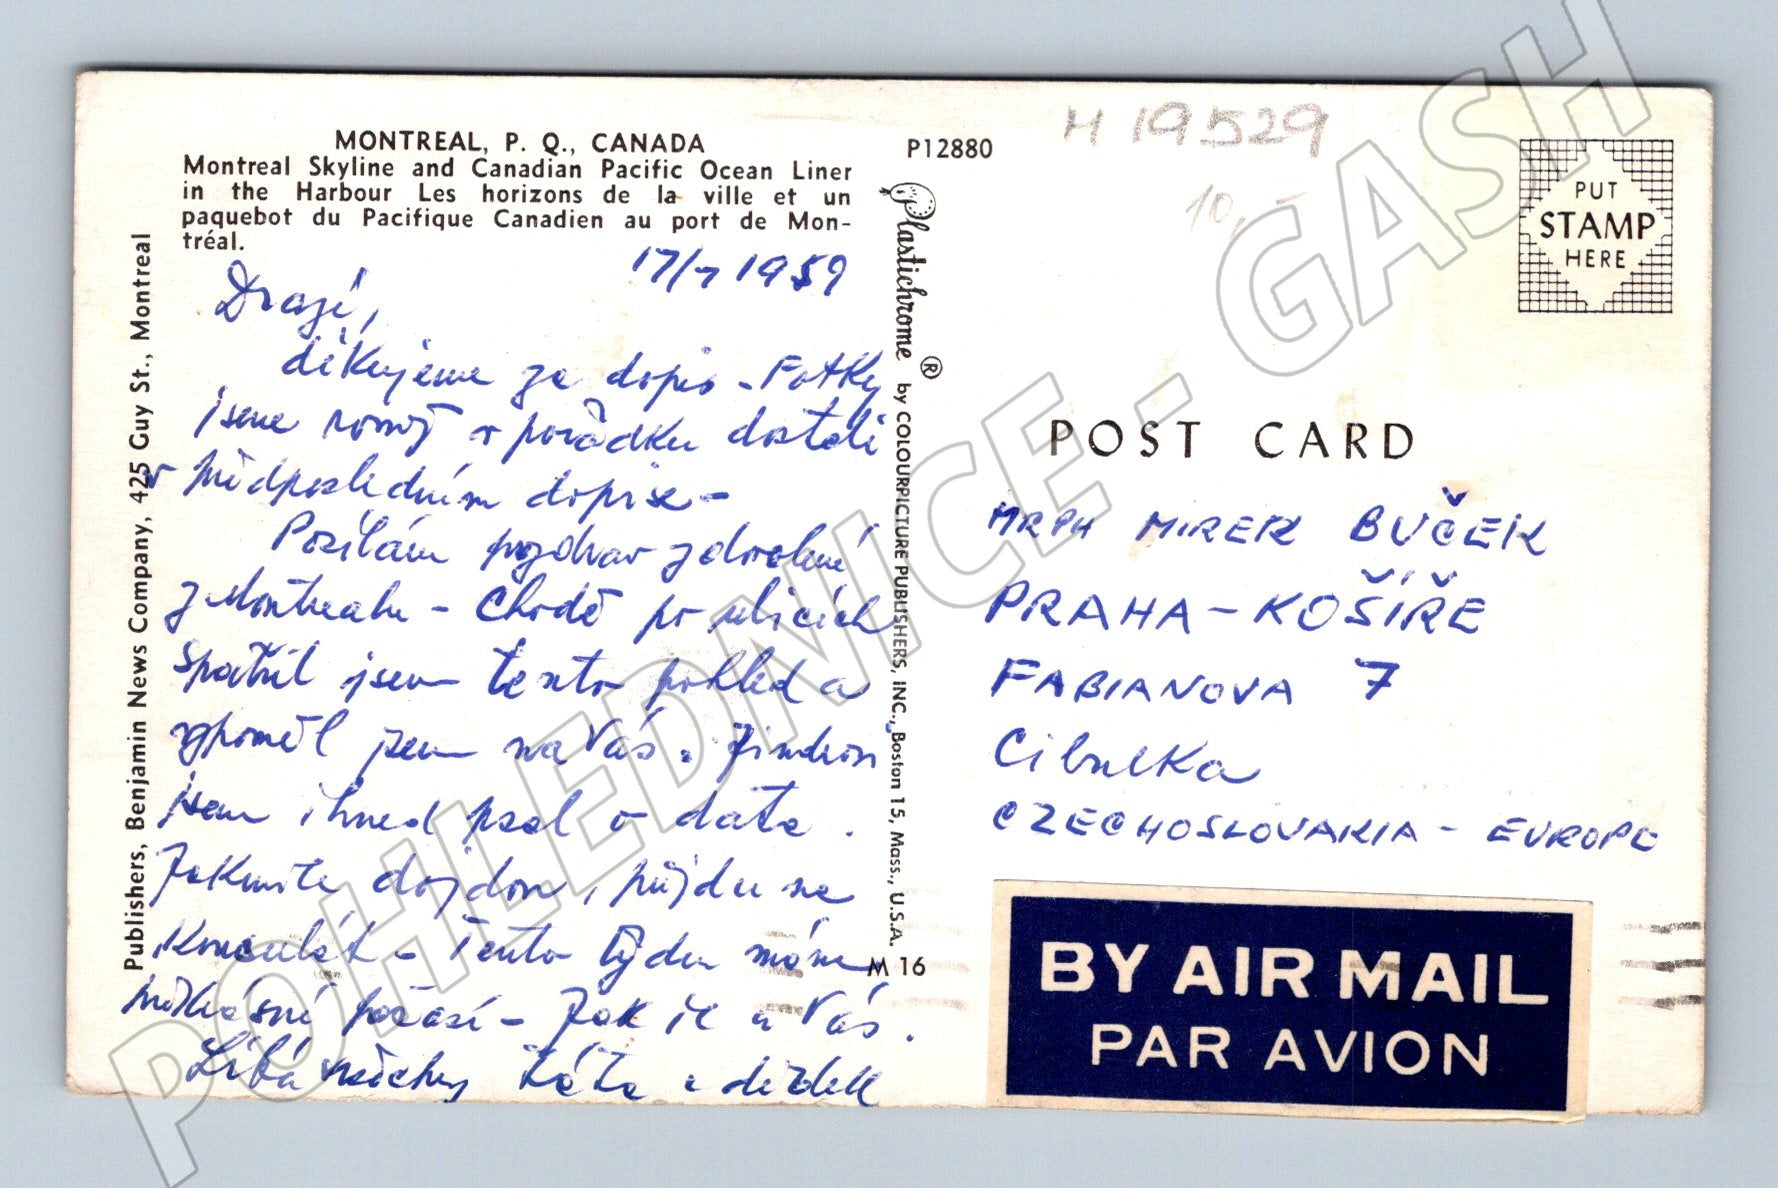 MONTREAL, P. Q., CANADA
Montreal Skyline and Canadian Pacific Ocean Liner
in the Harbour Les horizons de la ville et un
paquebot du Pacifique Canadien au port de Mon-
tréal.
17/7 1959
Drazí,
děkujeme za dopis - Fotky
jsme rovněž v pořádku dostali
v předposledním dopise -
Posílám pozdrav
z Montrealu - Chodě po ulicích
spatřil jsem tento pohled a
vzpoměl jsem na Vás.
jsem ihned psal o data.
Jakmile dojdou, půjdu na
Konsulát - Tento týden máme
překrásné počasí - Jak je u Vás.
Líbá všechny táta a dědek
Publishers, Benjamin News Company, 425 Guy St., Montreal
Plastichrome ® by COLOURPICTURE PUBLISHERS, INC., Boston 15, Mass., U.S.A.
M 16
P12880
H 19529
10,-
PUT
STAMP
HERE
POST CARD
MRPH MIREK BUČEK
PRAHA - KOŠÍŘE
FABIANOVA 7
Cibulka
CZECHOSLOVAKIA - EUROPE
BY AIR MAIL
PAR AVION
POHLEDNICE - GASH